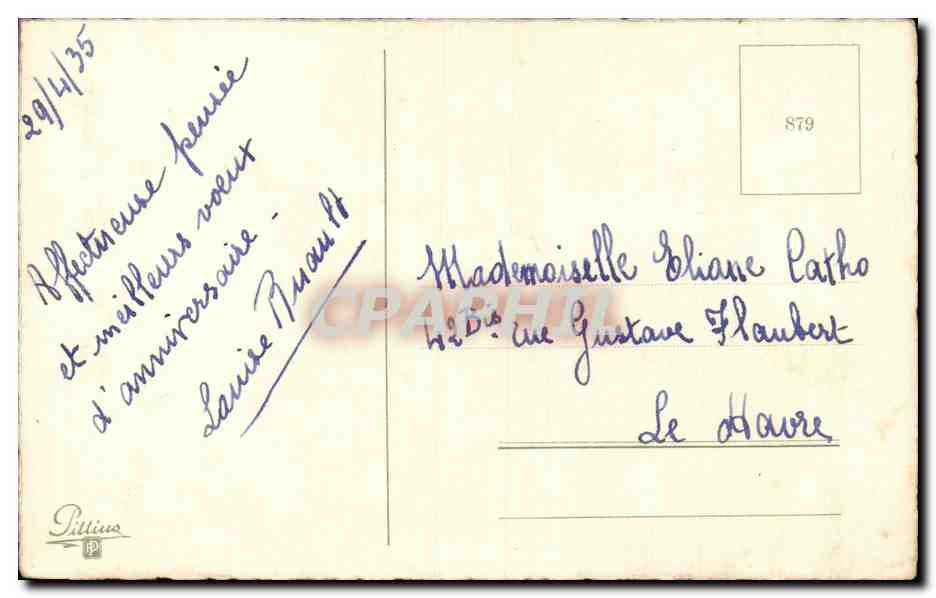 29/4/35
Affectueuse pensée
et meilleurs voeux
d'anniversaire -
Louise Ruault
879
Mademoiselle Eliane Catho
42 Bis rue Gustave Flaubert
Le Havre
CPARHTI